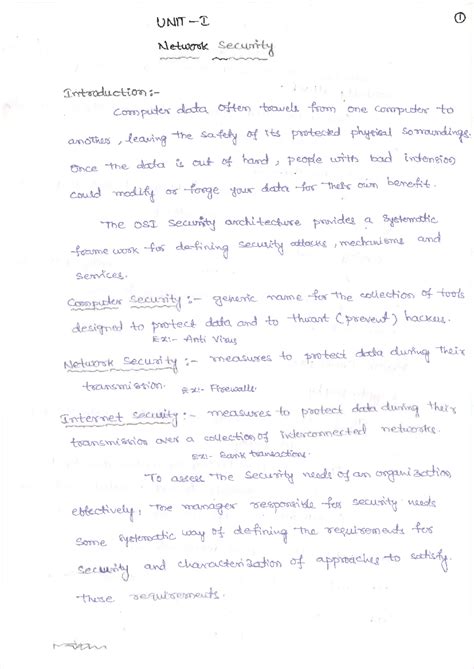 UNIT-I
①
Network Security
Introduction:-
Computer data often travels from one computer to
another, leaving the safety of its protected physical sorroundings.
Once the data is out of hand, people with bad intension
could modify or forge your data for their own benefit.
The OSI security architecture provides a systematic
frame work for defining security attacks, mechanisms and
services.
Computer Security:- generic name for the collection of tools
designed to protect data and to thwart (prevent) hackers.
Ex:- Anti Virus
Network Security:- measures to protect data during their
transmission. Ex:- Firewalls
Internet Security:- measures to protect data during their
transmission over a collection of interconnected networks.
Ex:- Bank transactions.
To assess the security needs of an organization
effectively, the manager responsible for security needs
some systematic way of defining the requirements for
security and characterization of approaches to satisfy
those requirements.